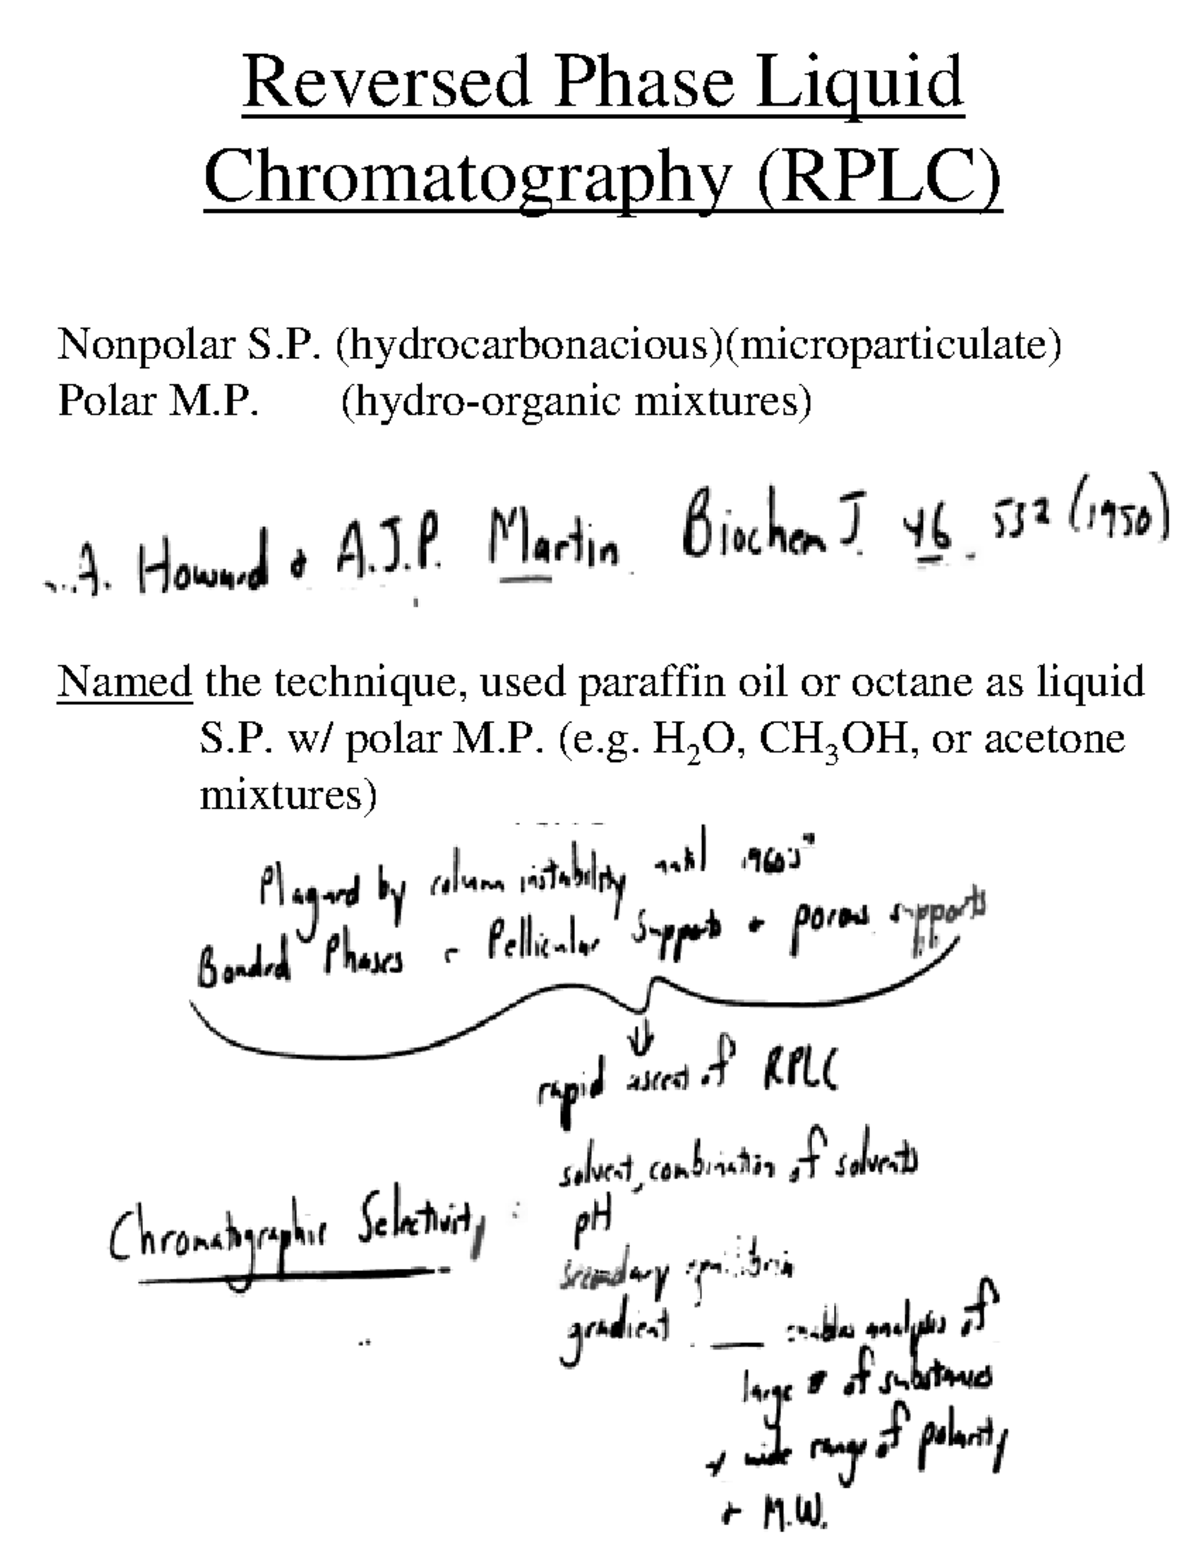 Reversed Phase Liquid
Chromatography (RPLC)
Nonpolar S.P. (hydrocarbonacious)(microparticulate)
Polar M.P. (hydro-organic mixtures)
A. Howard + A.J.P. Martin Biochem J. 46. 532 (1950)
Named the technique, used paraffin oil or octane as liquid
S.P. w/ polar M.P. (e.g. H₂O, CH₃OH, or acetone
mixtures)
Plagued by column instability until 1960's
Bonded Phases - Pellicular Supports + porous supports
rapid ascent of RPLC
Chromatographic Selectivity : solvent, combination of solvents
pH
secondary equilibria
gradient — enables analysis of
large # of substances
+ wide range of polarity
+ M.W.